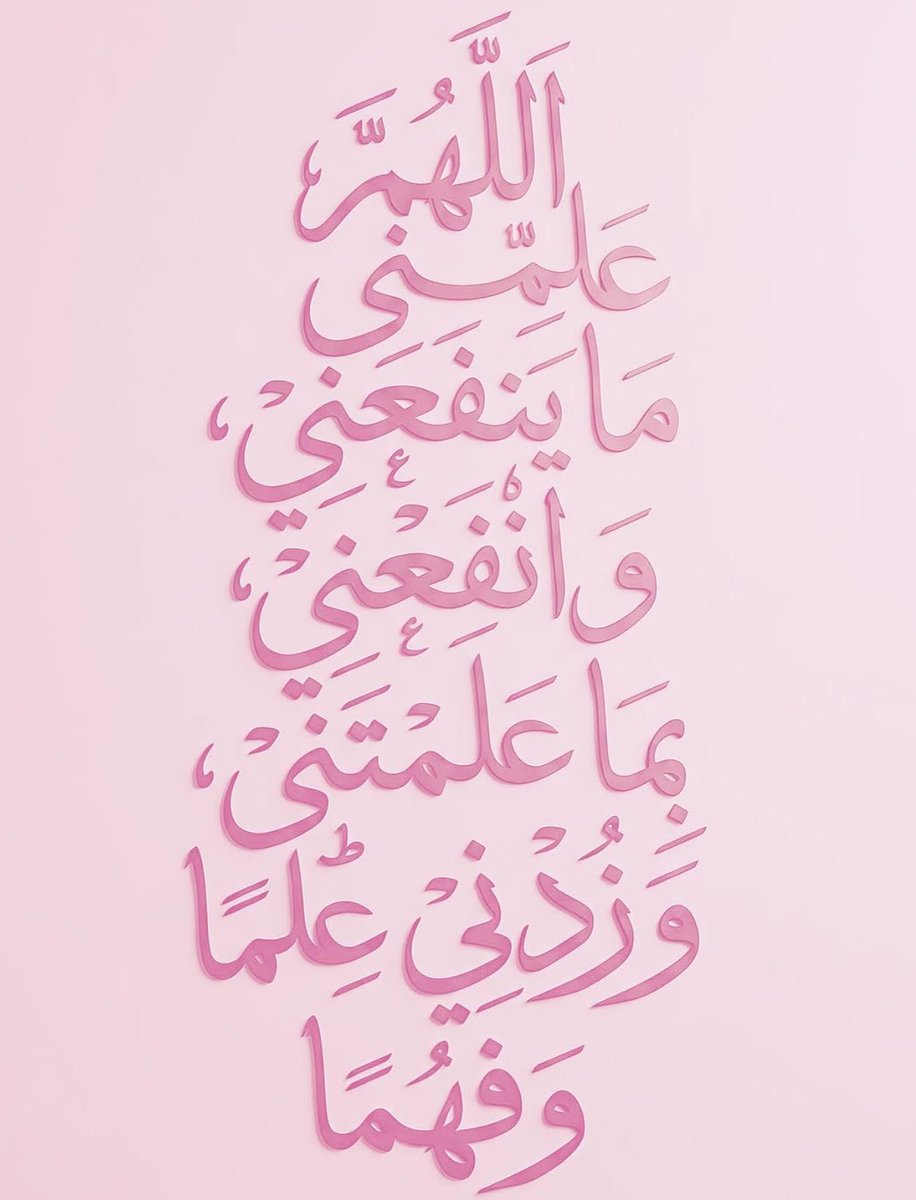 اَللَّهُمَّ
عَلمِّنِي
مَا يَنفَعَنِيْ،
وَانْفَعْنِيْ،
بِمَا عَلَمْتَنيْ،
وَزُدْنِيْ عِلمًا
وَفهُمًا